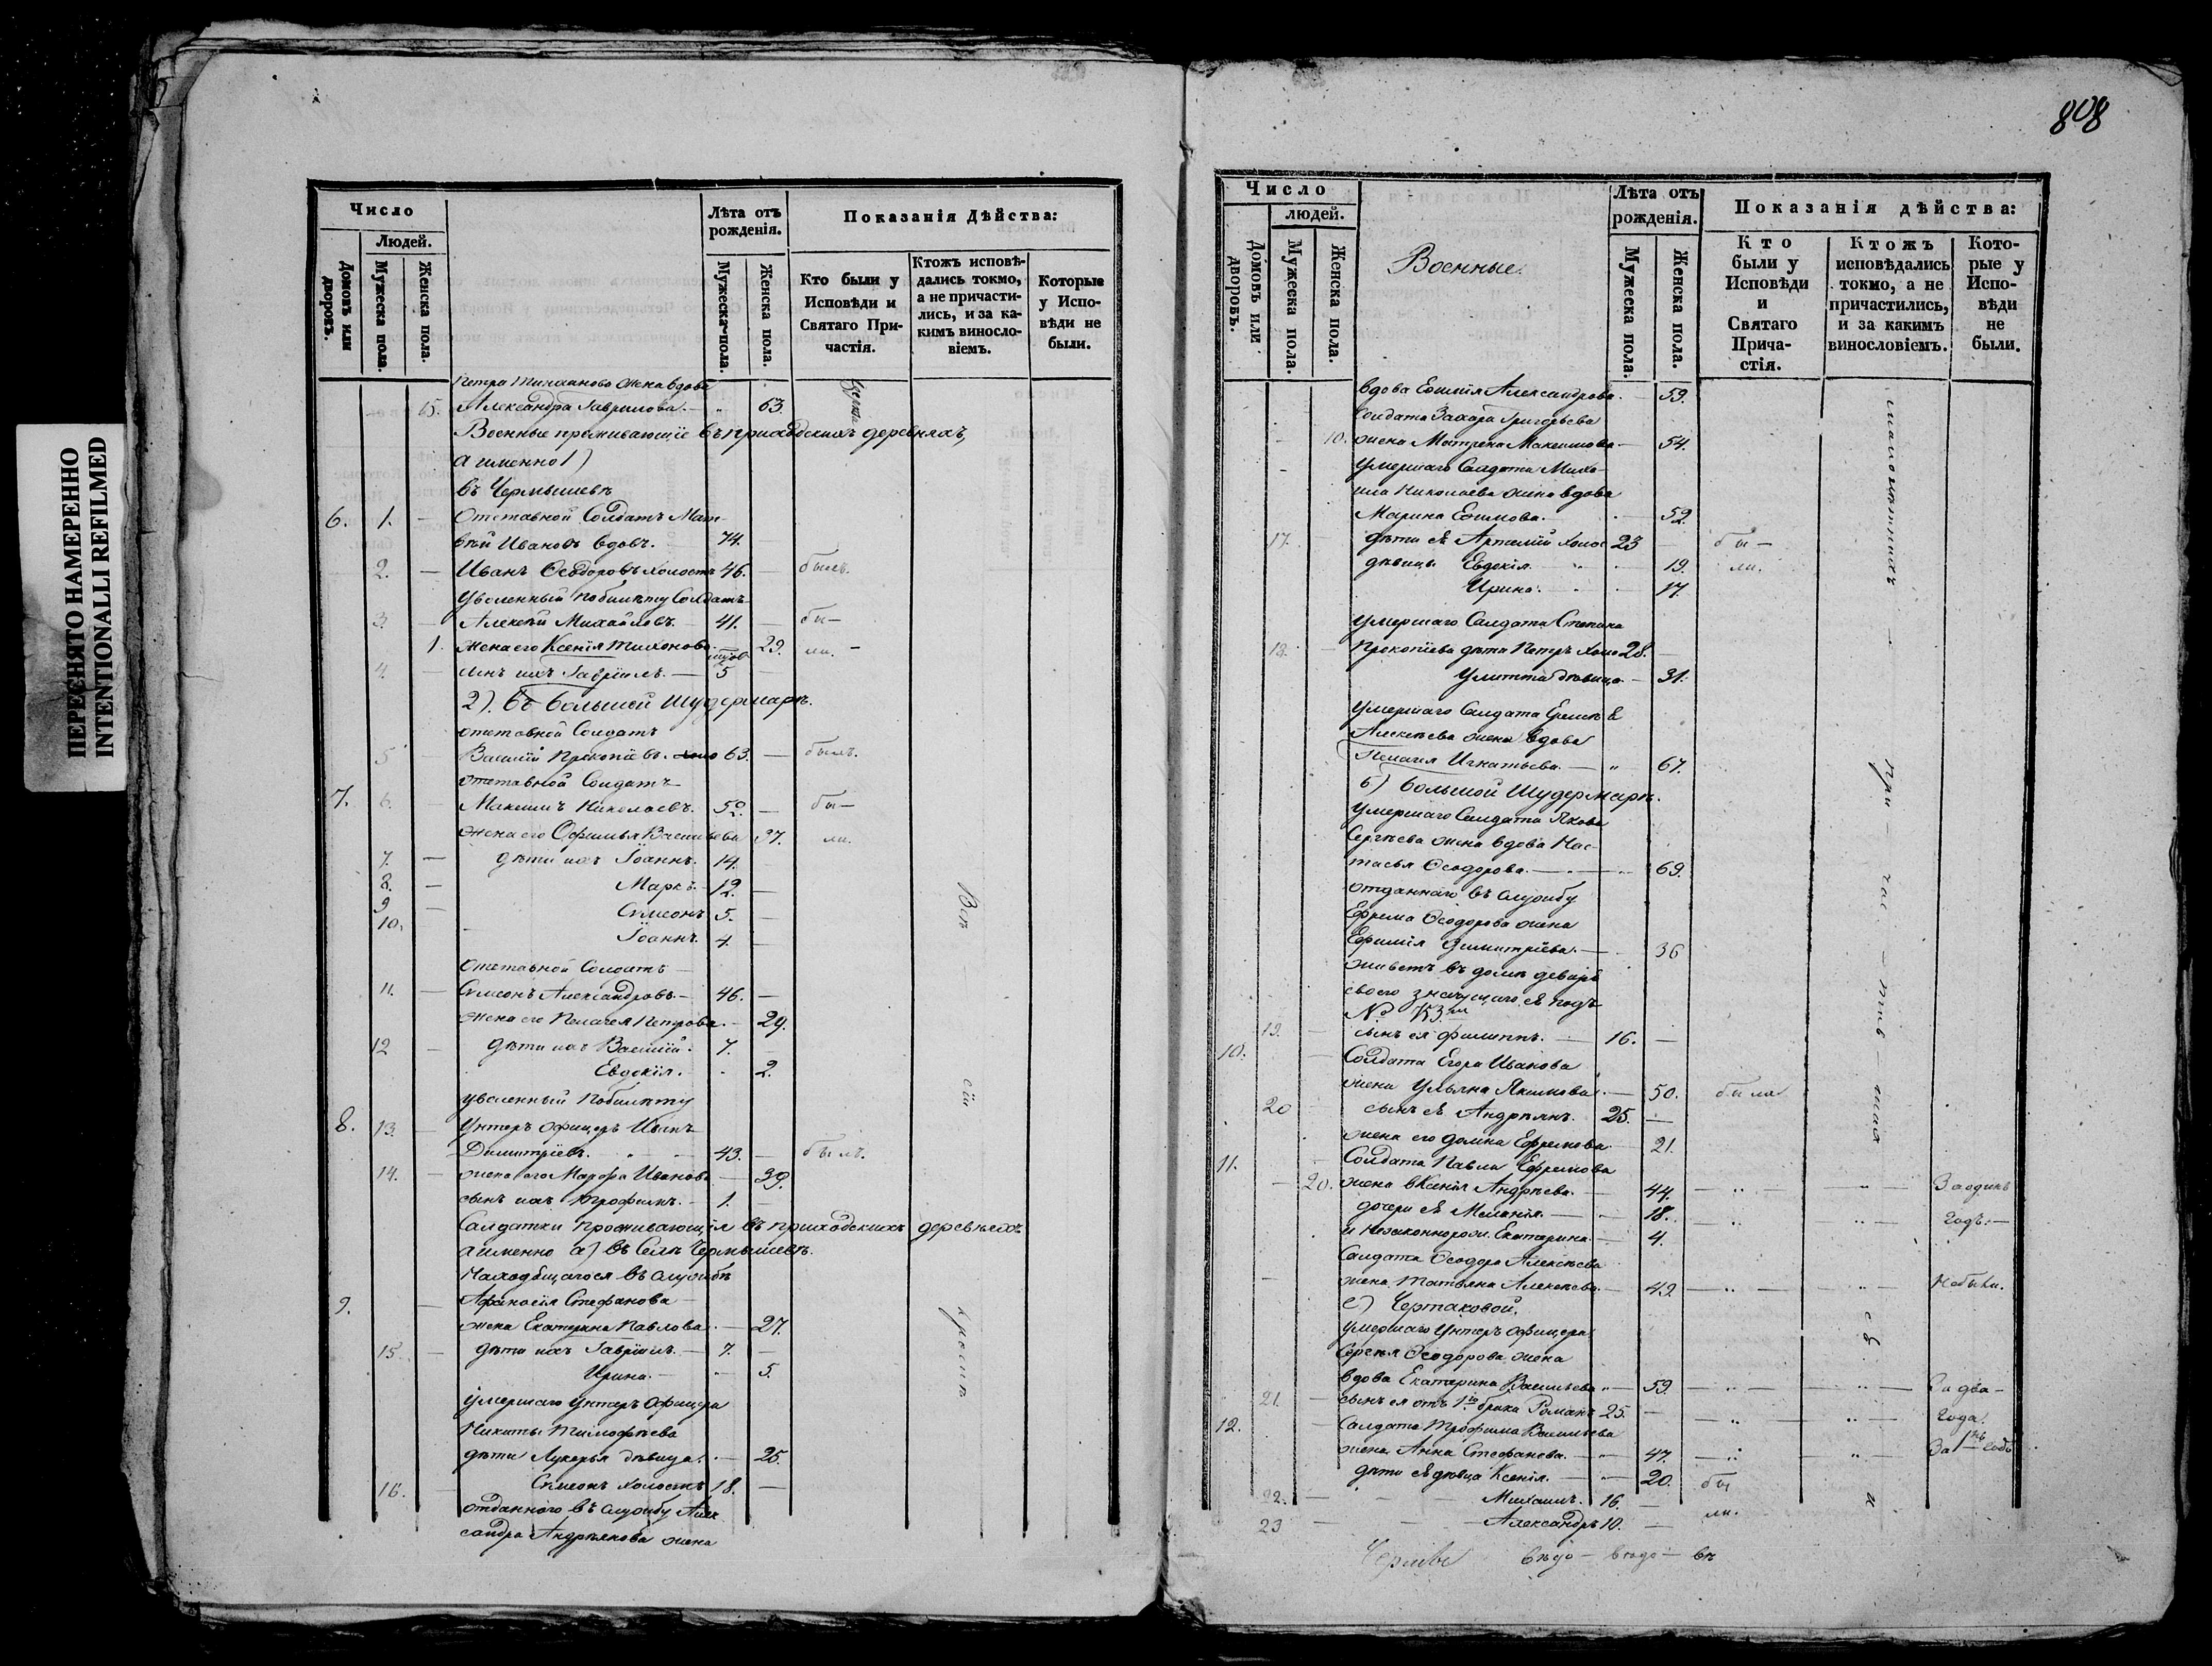 ПЕРЕСНЯТО НАМЕРЕННО
INTENTIONALLI REFILMED
Число
Людей.
Домовъ или дворовъ.
Мужеска пола.
Женска пола.
Лѣта отъ рожденія.
Мужеска пола.
Женска пола.
Показанія Дѣйства:
Кто были у Исповѣди и Святаго Причастія.
Ктожъ исповѣдались токмо, а не причастились, и за какимъ винословіемъ.
Которые у Исповѣди не были.
Петра жена вдова
15. Александра Гаврилова. — „ 63.
Военные проживающіе въ приходскихъ деревняхъ,
а именно 1)
въ Чермышевѣ
6. 1. — Отставной Солдатъ Мат-
вѣй Ивановъ вдовъ. 74. —
2. — Иванъ Ѳеодоровъ холостъ 46. — былъ.
Уволенный по билѣту Солдатъ
3. Алексѣй Михайловъ 41. — бы-
1. жена его Ксенія Тихонова 29. ли. —
4. — сынъ ихъ Гавріилъ. — 5 —
2). въ большой Шудермарѣ.
отставной Солдатъ
5 — Василій Прокопіевъ. 63. — былъ.
отставной Солдатъ
7. 6. — Максимъ Николаевъ. 52. — бы-
жена его Офимья Васильева 37. ли.
7. — дѣти ихъ Іоаннъ. 14.
8. — Маркъ. 12. —
9 — Симеонъ 5. —
10. — Іоаннъ. 4. —
отставной Солдатъ —
11. — Симеонъ Александровъ. — 46. —
жена его Пелагея Петрова. — 29.
12 — дѣти ихъ Василій. 7. —
Евдокія. 2.
уволенный по билѣту
8. 13. — Унтеръ Офицеръ Иванъ
Димитріевъ. 43. — былъ.
14. — жена его Марфа Иванова — 39.
сынъ ихъ Трофимъ. — 1.
Салдатки проживающія въ приходскихъ деревняхъ
а именно а) въ Селѣ Чермышевѣ.
Находящагося въ службѣ
9. — Афанасія Стефанова —
жена Екатерина Павлова. — 27.
15 — дѣти ихъ Гавріилъ. — 7. —
Ирина. — 5.
умершаго Унтеръ Офицера
Никиты Тимофѣева
дѣти Лукерья дѣвица. — 25.
16. — Симеонъ холостъ 18. —
отданного въ службу Алек
сандра Андреянова жена
Всѣ
сіи
кромѣ
808
Число
людей.
Домовъ или дворовъ.
Мужеска пола.
Женска пола.
Военные.
Лѣта отъ рожденія.
Мужеска пола.
Женска пола.
Показанія дѣйства:
Кто были у Исповѣди и Святаго Причастія.
Ктожъ исповѣдались токмо, а не причастились, и за какимъ винословіемъ.
Которые у Исповѣди не были.
вдова Евмилія Александрова. — 59.
Солдата Захара Григорьева
— 10. жена Матрена Максимова — 54.
умершаго Салдата Миха-
ила Николаева жена вдова
Марина Ефимова. — 52.
17. — дѣти ея холос 23 — бы —
дѣвицы Евдокія 19. ли.
Ирина. 17.
умершаго Салдата Степана
18. — Прокопіева дѣти Петръ холо 28. —
Улитта дѣвица — 31.
умершаго Салдата
Алексѣева жена вдова
Пелагея Игнатьева. — „ 67.
б) большой Шудермарѣ.
умершаго Салдата Якова
Сергѣева жена вдова Нас-
тасья Ѳеодорова. — 69.
отданнаго въ службу
Ефрема Ѳеодорова жена
Ефимія Димитріева. — 36
живетъ въ домѣ деверя
своего подъ
№
19. — сынъ ея Филиппъ. — 16. —
10. — Солдата Егора Иванова
жена Ульяна Якимова. — 50. была
20 — сынъ ея Андреянъ. 25. —
жена его Домна Ефремова — 21.
11. — Солдата Павла Ефремова
— 20. жена Ксенія Андреева. — 44. — „ — „ — За одинъ
дочери ея Меланія. — 18. — „ — „ — годъ. —
и незаконнорож. Екатерина — 4.
Салдата Ѳеодора Алексѣева
— жена Татьяна Алексѣева. — 49. — „ — „ — небыли.
с) Чертаковой.
умершаго Унтеръ Офицера
Сергѣя Ѳеодорова жена
вдова Екатерина Васильева „ — 59. — „ — „ — За два —
21. — сынъ ея отъ 1го брака Романъ 25. — „ — „ — года.
12. — Салдата Трофима Васильева
жена Анна Стефанова. — „ 47. — „ — „ — За 1нъ годъ
дѣти ея дѣвица Ксенія. — „ 20. бы
22. — Михаилъ. 16. —
23 — Александръ 10. — ли.
малолѣтнихъ —
при — час — тив